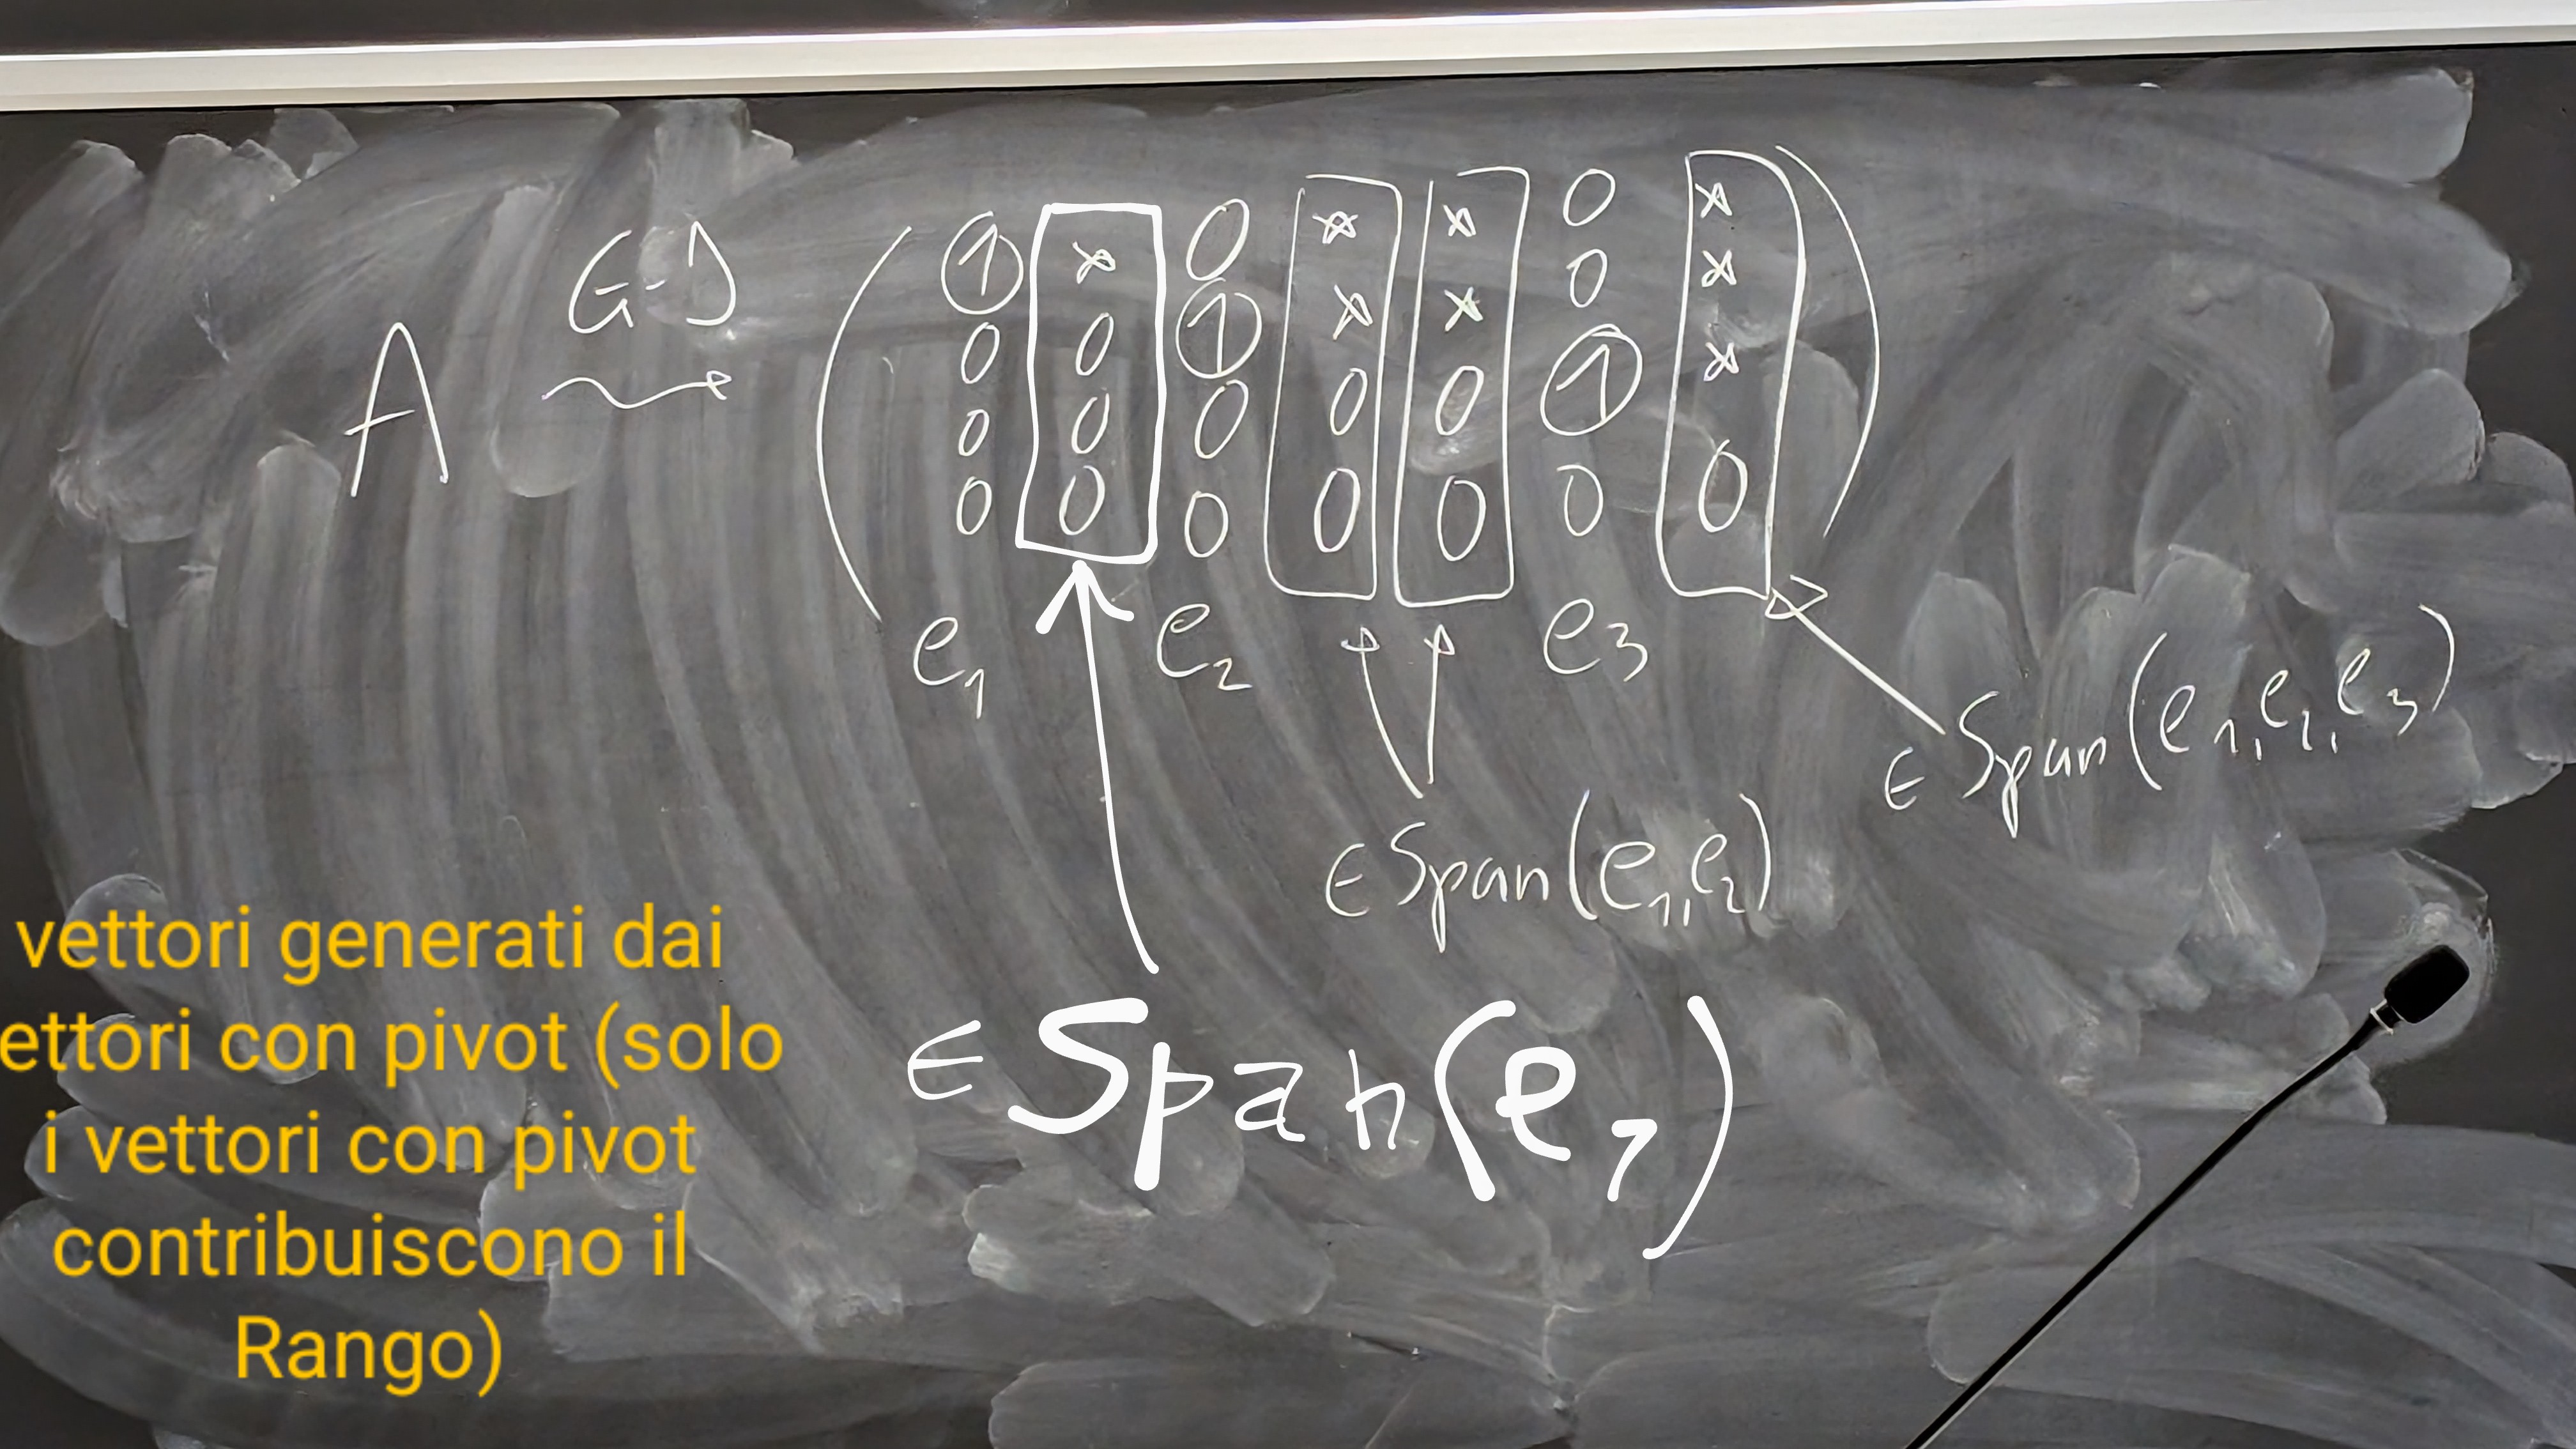 A G-J
① x 0 x x 0 x
0 0 ① x x 0 x
0 0 0 0 0 ① x
0 0 0 0 0 0 0
e₁ e₂ e₃
∈ Span(e₁,e₂,e₃)
∈ Span(e₁,e₂)
∈ Span(e₁)
vettori generati dai
ettori con pivot (solo
i vettori con pivot
contribuiscono il
Rango)